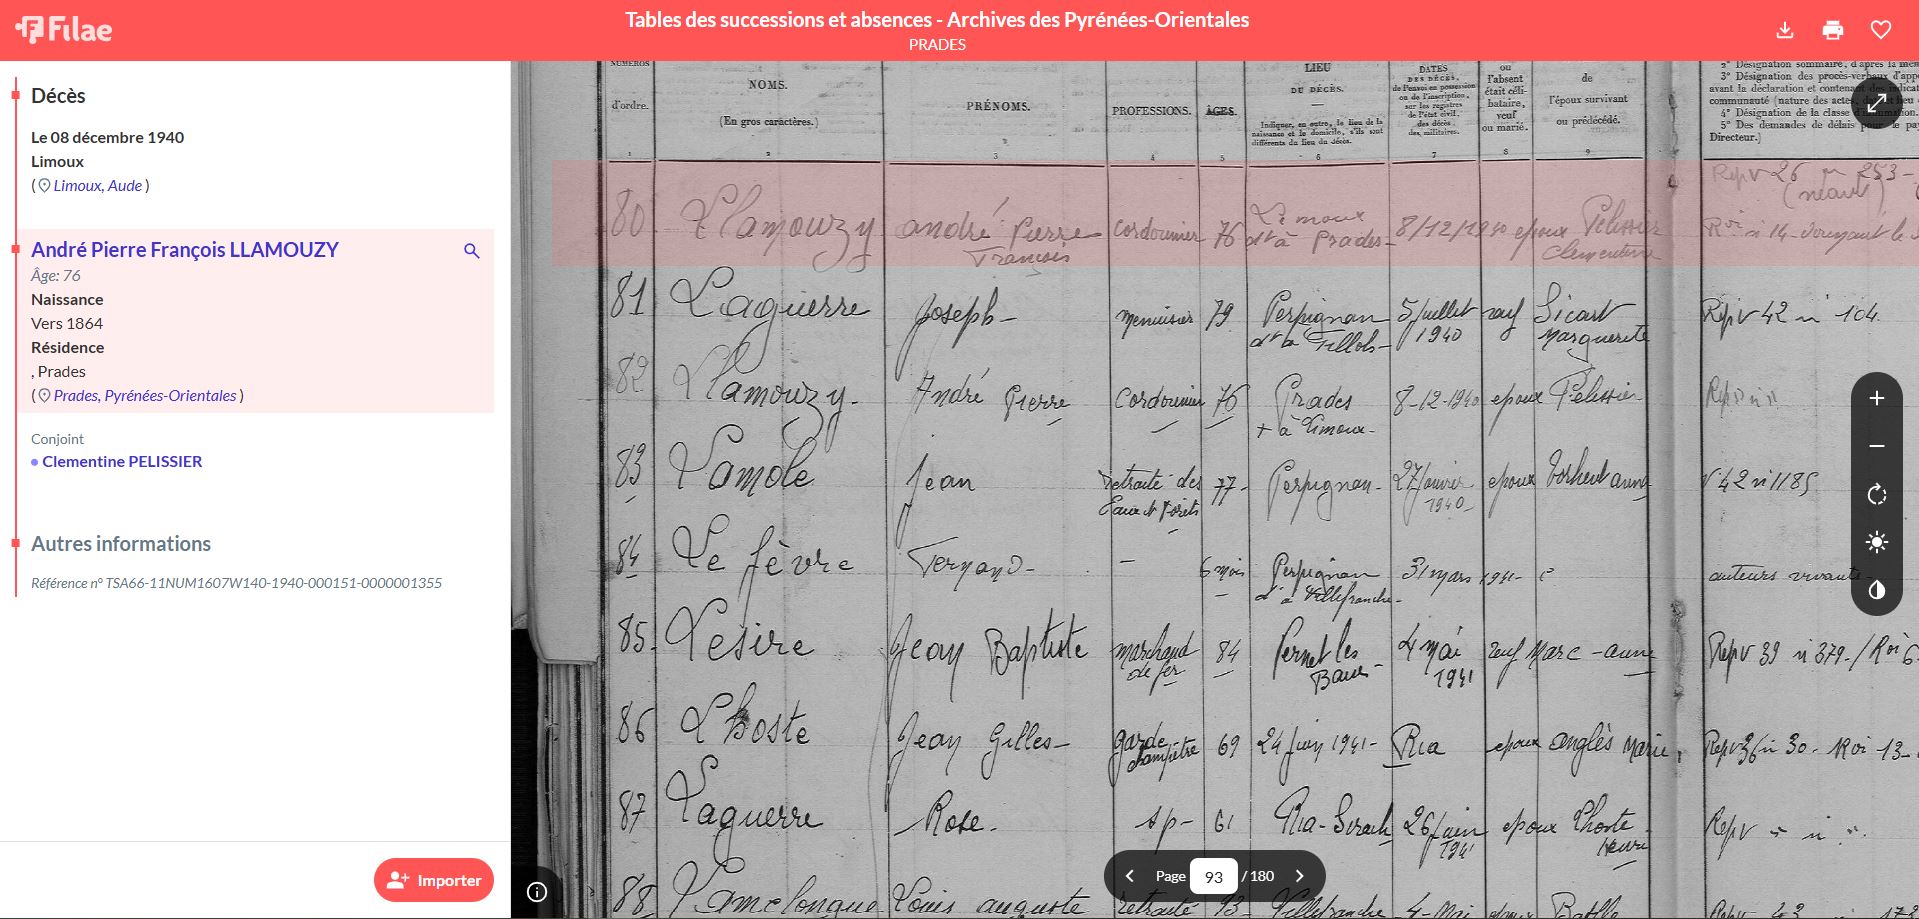 Filae
Tables des successions et absences - Archives des Pyrénées-Orientales
PRADES
Décès
Le 08 décembre 1940
Limoux
( Limoux, Aude )
André Pierre François LLAMOUZY
Âge: 76
Naissance
Vers 1864
Résidence
, Prades
( Prades, Pyrénées-Orientales )
Conjoint
Clementine PELISSIER
Autres informations
Référence n° TSA66-11NUM1607W140-1940-000151-0000001355
Importer
NUMÉROS
d'ordre.
1
NOMS.
(En gros caractères.)
2
PRÉNOMS.
3
PROFESSIONS.
4
ÂGES.
5
LIEU
DU DÉCÈS.
Indiquer, en outre, le lieu de la
naissance et le domicile, s'ils sont
différents du lieu du décès.
6
DATES
DES DÉCÈS,
de l'envoi en possession
ou de l'inscription,
sur les registres
de l'état civil,
des décès
des militaires.
7
ou
l'absent
était céli-
bataire,
veuf
ou marié.
8
de
l'époux survivant
ou prédécédé.
9
2° Désignation sommaire, d'après la
3° Désignation des procès-verbaux
avant la déclaration et contenant
communauté (nature des actes,
4° Désignation de la classe
5° Des demandes de délais pour le
Directeur.)
Rep V 26 n 253 -
(néant)
80 Llamouzy andré Pierre cordonnier 76 Limoux 8/12/1940 epoux Pelissier
François dt à Prades - Clementine
81 Laguerre Joseph - menuisier 79 Perpignan 5 juillet veuf Sicart Rep V 42 n 104.
dt à Fillols - 1940 Marguerite
82 Llamouzy - André Pierre Cordonnier 76 Prades 8-12-1940 epoux Pelissier
+ à Limoux -
83 Lamole Jean retraité des 77 - Perpignan - 27 janvier epoux anna V 42 n 1185
Eaux et Forêts 1940 -
84 Le fèvre Fernand - - 6 mois Perpignan 31 mars 1941 - c auteurs vivants -
dt à Villefranche -
85. Lesire Jean Baptiste marchand 84 Pernet les 4 mai veuf Marc - anne Rep V 39 n 379 - / Roi 6
de fer 1941
86 Lhoste Jean Gilles - garde 69 24 juin 1941 - Ria epoux anglès Marie Rep V 36 n 30 - Roi 13 -
champêtre
87 Laguerre Rose - sp - 61 Ria - Sirach 26 juin epoux Lhoste Rep V " n "
1941
88 Lamolongue Louis auguste retraité 93 - Villefranche - 4 - Mai epoux Batlle
Page 93 / 180